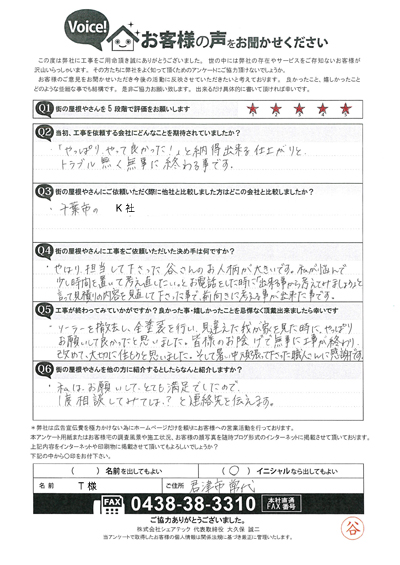 Voice!
お客様の声をお聞かせください
この度は弊社に工事をご用命頂き誠にありがとうございました。世の中には弊社の存在やサービスをご存知ないお客様が
沢山いらっしゃいます。その方たちに弊社をよく知って頂くためのアンケートにご協力頂けないでしょうか。
お客様のご意見をお聞かせいただき今後の活動に反映させていただきたいと考えております。良かったこと、嬉しかったこと
どのような些細な事でも結構です。是非ご協力お願い致します。出来るだけ具体的に書いて頂ければ幸いです。
Q1 街の屋根やさんを5段階で評価をお願いします ★ ★ ★ ★ ★
Q2 当初、工事を依頼する会社にどんなことを期待されていましたか?
・「やっぱり、やって良かった!」と納得出来る仕上がりと、
トラブル無く無事に終わる事です。
Q3 街の屋根やさんにご依頼いただく際に他社と比較しました方はどこの会社と比較しましたか?
・千葉市の K社
Q4 街の屋根やさんに工事をご依頼いただいた決め手は何ですか?
・やはり、担当して下さった谷さんのお人柄が大きいです。私が悩んで
少し時間を置いて考え直したい。とお電話をした時に「出来る事から考えてみましょう」と
言って見積りの内容を見直して下さった事で、前向きに考える事が出来た事です。
Q5 工事が終わってみていかがですか?良かった事・嬉しかったことを忌憚なく頂戴出来ましたら幸いです
・ソーラーを撤去し、全塗装を行い、見違えた我が家を見た時に、やっぱり
お願いして良かったと思いました。皆様のお陰げで無事に工事が終わり、
改めて、大切に住もうと思いました。そして暑い中頑張って下さった職人さんに感謝です。
Q6 街の屋根やさんを他の方に紹介するとしたらなんと紹介しますか?
・私は、お願いして、とても満足でしたので、
「1度相談してみては。?」と連絡先を伝えます。
※弊社は広告宣伝費を極力かけない為にホームページだけを頼りにお客様からお仕事をいただいております。
本アンケート用紙またはお客様宅の調査風景や施工状況、お客様の顔写真を随時ブログ形式のインターネットに掲載させて頂いております。
上記内容をインターネットや印刷物に掲載させて頂いてもよろしいでしょうか?
下記の中から〇印をお付け下さい。
( ) 名前を出してもよい ( 〇 ) イニシャルなら出してもよい
名前 T様 ご住所 君津市常代
FAX 0438-38-3310 本社直通 FAX番号
ご協力ありがとうございました。
株式会社シェアテック 代表取締役 大久保 誠二
当アンケートで取得したお客様の個人情報は関係法規に基づき厳正に管理いたします。
谷